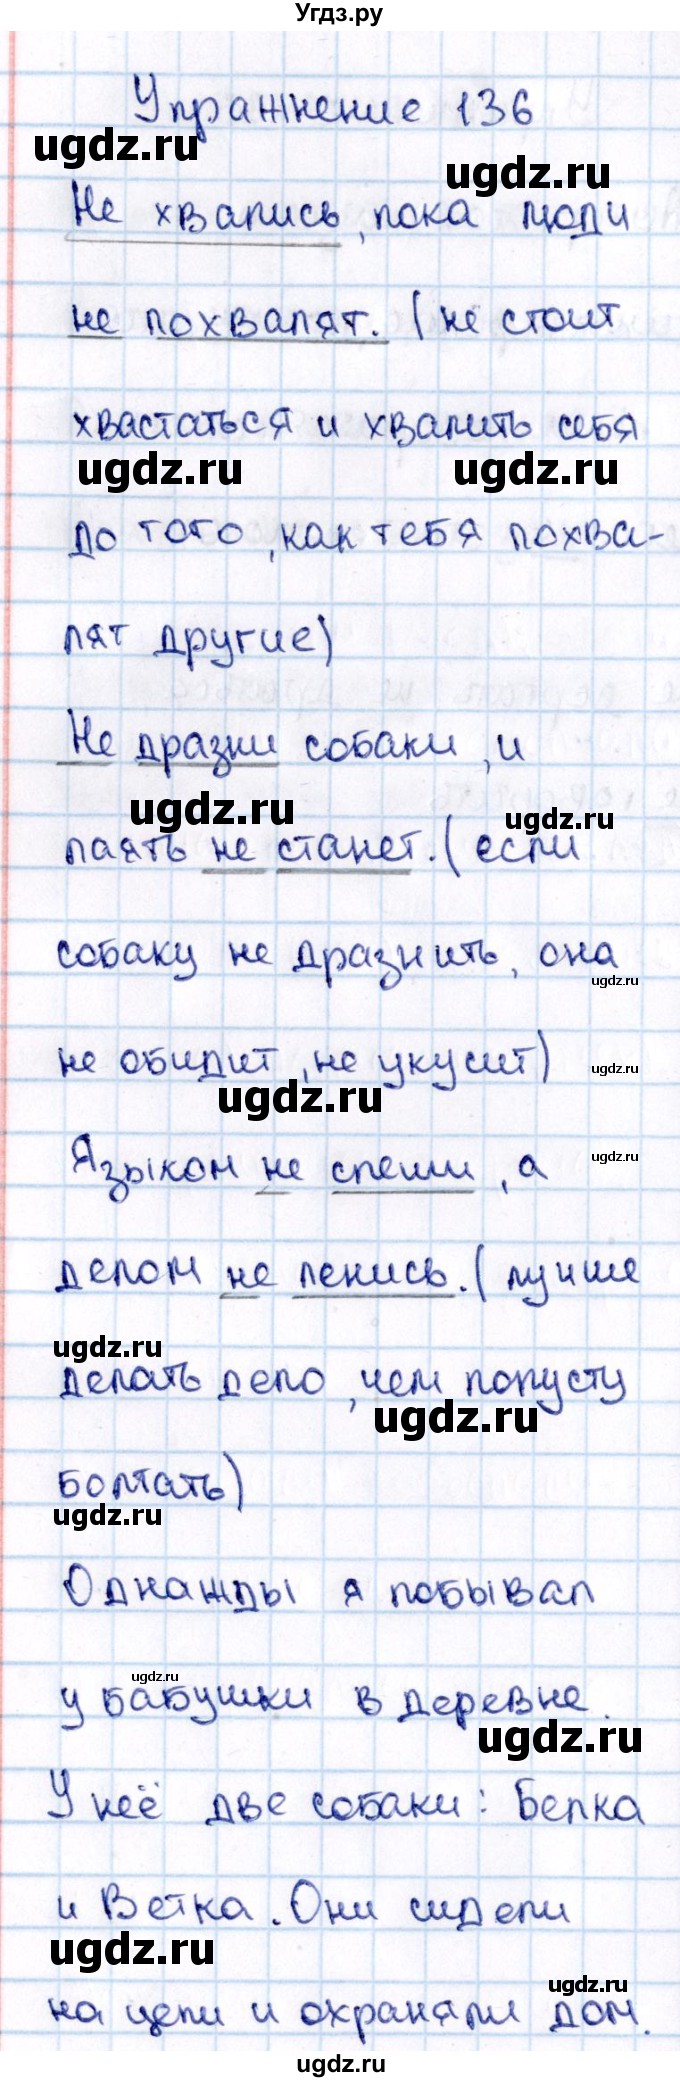 Угдз.ру
Упражнение 136
ugdz.ru
ugdz.ru
Не хвались, пока люди
не похвалят. (не стоит
хвастаться и хвалить себя
ugdz.ru
ugdz.ru
до того, как тебя похва-
лят другие)
Не дразни собаки, и
ugdz.ru
ugdz.ru
лаять не станет. (если
собаку не дразнить, она
ugdz.ru
не обидит, не укусит)
ugdz.ru
ugdz.ru
Языком не спеши, а
ugdz.ru
делом не ленись. (лучше
ugdz.ru
делать дело, чем попусту
ugdz.ru
болтать)
ugdz.ru
Однажды я побывал
ugdz.ru
у бабушки в деревне.
ugdz.ru
У неё две собаки: Белка
и Ветка. Они сидели
ugdz.ru
ugdz.ru
на цепи и охраняли дом.
ugdz.ru